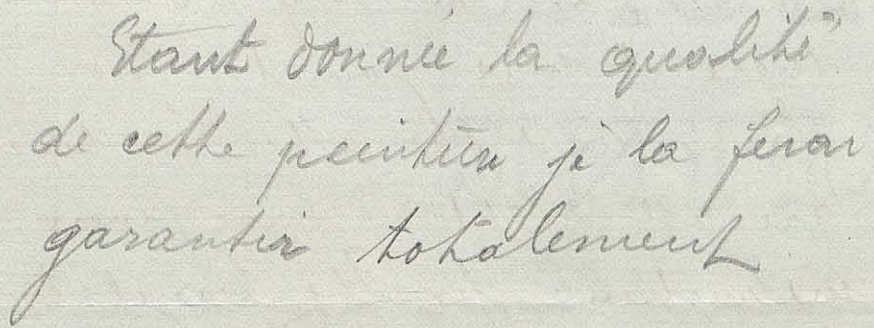 Etant donnée la qualité
de cette peinture je la ferai
garantir totalement